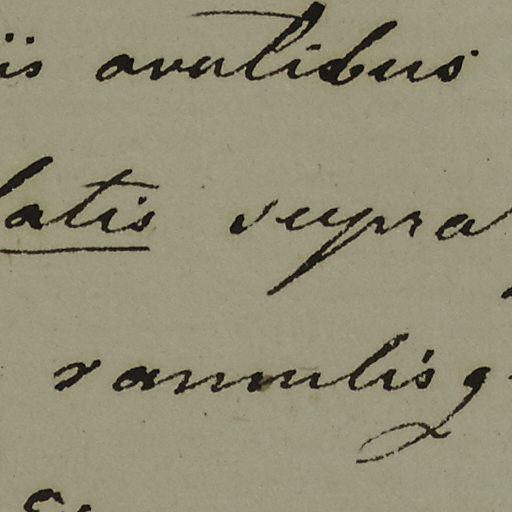 is ovalibus
latis supra
ramulisq